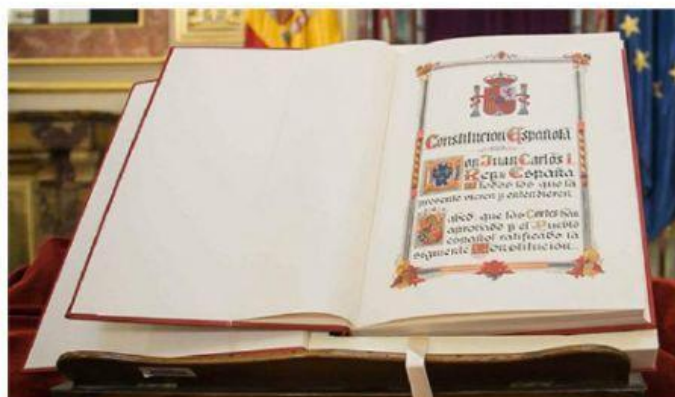 Constitución Española
Don Juan Carlos I
Rey de España
a todos los que la
presente vieren y entendieren,
Sabed: que las Cortes han
aprobado y el Pueblo
español ratificado la
siguiente Constitución.